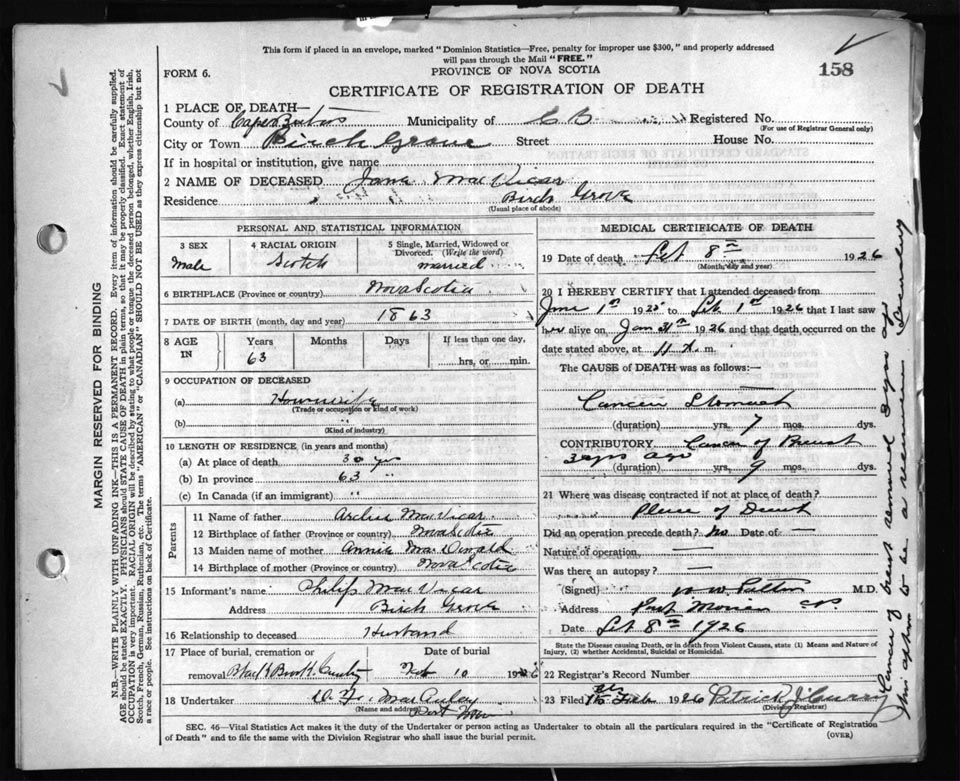 This form if placed in an envelope, marked "Dominion Statistics—Free, penalty for improper use $300," and properly addressed
will pass through the Mail "FREE."
FORM 6.
PROVINCE OF NOVA SCOTIA
158
CERTIFICATE OF REGISTRATION OF DEATH
1 PLACE OF DEATH—
County of Cape Breton Municipality of C B Registered No.
(For use of Registrar General only)
City or Town Birch Grove Street House No.
If in hospital or institution, give name
2 NAME OF DECEASED Jane MacVicar
Residence Birch Grove
(Usual place of abode)
PERSONAL AND STATISTICAL INFORMATION
3 SEX 4 RACIAL ORIGIN 5 Single, Married, Widowed or
Divorced. (Write the word)
Male Scotch married
6 BIRTHPLACE (Province or country) Nova Scotia
7 DATE OF BIRTH (month, day and year) 1863
8 AGE IN Years Months Days If less than one day,
63 hrs, or min.
9 OCCUPATION OF DECEASED
(a) Housewife
(Trade or occupation or kind of work)
(b) "
(Kind of industry)
10 LENGTH OF RESIDENCE (in years and months)
(a) At place of death 30 yrs
(b) In province 63 "
(c) In Canada (if an immigrant) "
Parents
11 Name of father Archie MacVicar
12 Birthplace of father (Province or country) Nova Scotia
13 Maiden name of mother Annie MacDonald
14 Birthplace of mother (Province or country) Nova Scotia
15 Informant's name Philip MacVicar
Address Birch Grove
16 Relationship to deceased Husband
17 Place of burial, cremation or Date of burial
removal Black Brook 10 1926
18 Undertaker MacAulay
(Name and address) Port
MEDICAL CERTIFICATE OF DEATH
19 Date of death Feb 8th 1926
(Month, day and year)
20 I HEREBY CERTIFY that I attended deceased from
June 1st 1925 to Feb 1st 1926 that I last saw
her alive on Jan 31st 1926 and that death occurred on
date stated above, at 11 m.
The CAUSE of DEATH was as follows:—
Cancer Stomach
(duration) yrs. 7 mos. dys.
CONTRIBUTORY Cancer of Breast
3 yrs ago
(duration) yrs. 9 mos. dys.
21 Where was disease contracted if not at place of death?
Place of Death
Did an operation precede death? no Date of
Nature of operation —
Was there an autopsy? —
(Signed) M.D.
Address Port Morien
Date Feb 8th 1926
State the Disease causing Death, or in death from Violent Causes, state (1) Means and Nature of
Injury, (2) whether Accidental, Suicidal or Homicidal.
22 Registrar's Record Number
23 Filed Feb 1926 Patrick J Curran
(Division Registrar)
SEC. 46—Vital Statistics Act makes it the duty of the Undertaker or person acting as Undertaker to obtain all the particulars required in the "Certificate of Registration
of Death" and to file the same with the Division Registrar who shall issue the burial permit.
(OVER)
MARGIN RESERVED FOR BINDING
N.B.—WRITE PLAINLY WITH UNFADING INK—THIS IS A PERMANENT RECORD. Every item of information should be carefully supplied.
AGE should be stated EXACTLY. PHYSICIANS should STATE CAUSE OF DEATH in plain terms, so that it may be properly classified. Exact statement of
OCCUPATION is very important. RACIAL ORIGIN will be described by stating to what people or tongue the deceased person belonged, whether English, Irish,
Scotch, French, German, Russian, Ruthenian, etc. The terms "AMERICAN" or "CANADIAN" SHOULD NOT BE USED as they express citizenship but not
a race or people. See instructions on back of Certificate.
Cancer of breast removed 3 yrs ago
this appears to be a return